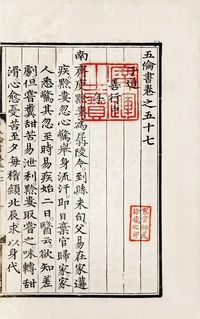 五倫書卷之五十七
子道
善行
廣運之寶
南齊庾黔婁為孱陵令到縣未旬父易在家遘
疾黔婁忽心驚舉身流汗即日棄官歸家家
人悉驚其忽至時易疾始二日醫云欲知差
劇但嘗糞甜苦易泄利黔婁取嘗之味轉甜
滑心愈憂苦至夕每稽顙北辰求以身代
寒雲秘笈
珍藏之印